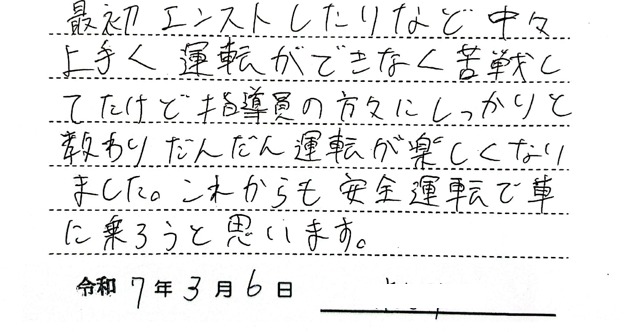 最初エンストしたりなど中々
上手く運転ができなく苦戦し
てたけど指導員の方々にしっかりと
教わりだんだん運転が楽しくなり
ました。これからも安全運転で車
に乗ろうと思います。
令和7年3月6日